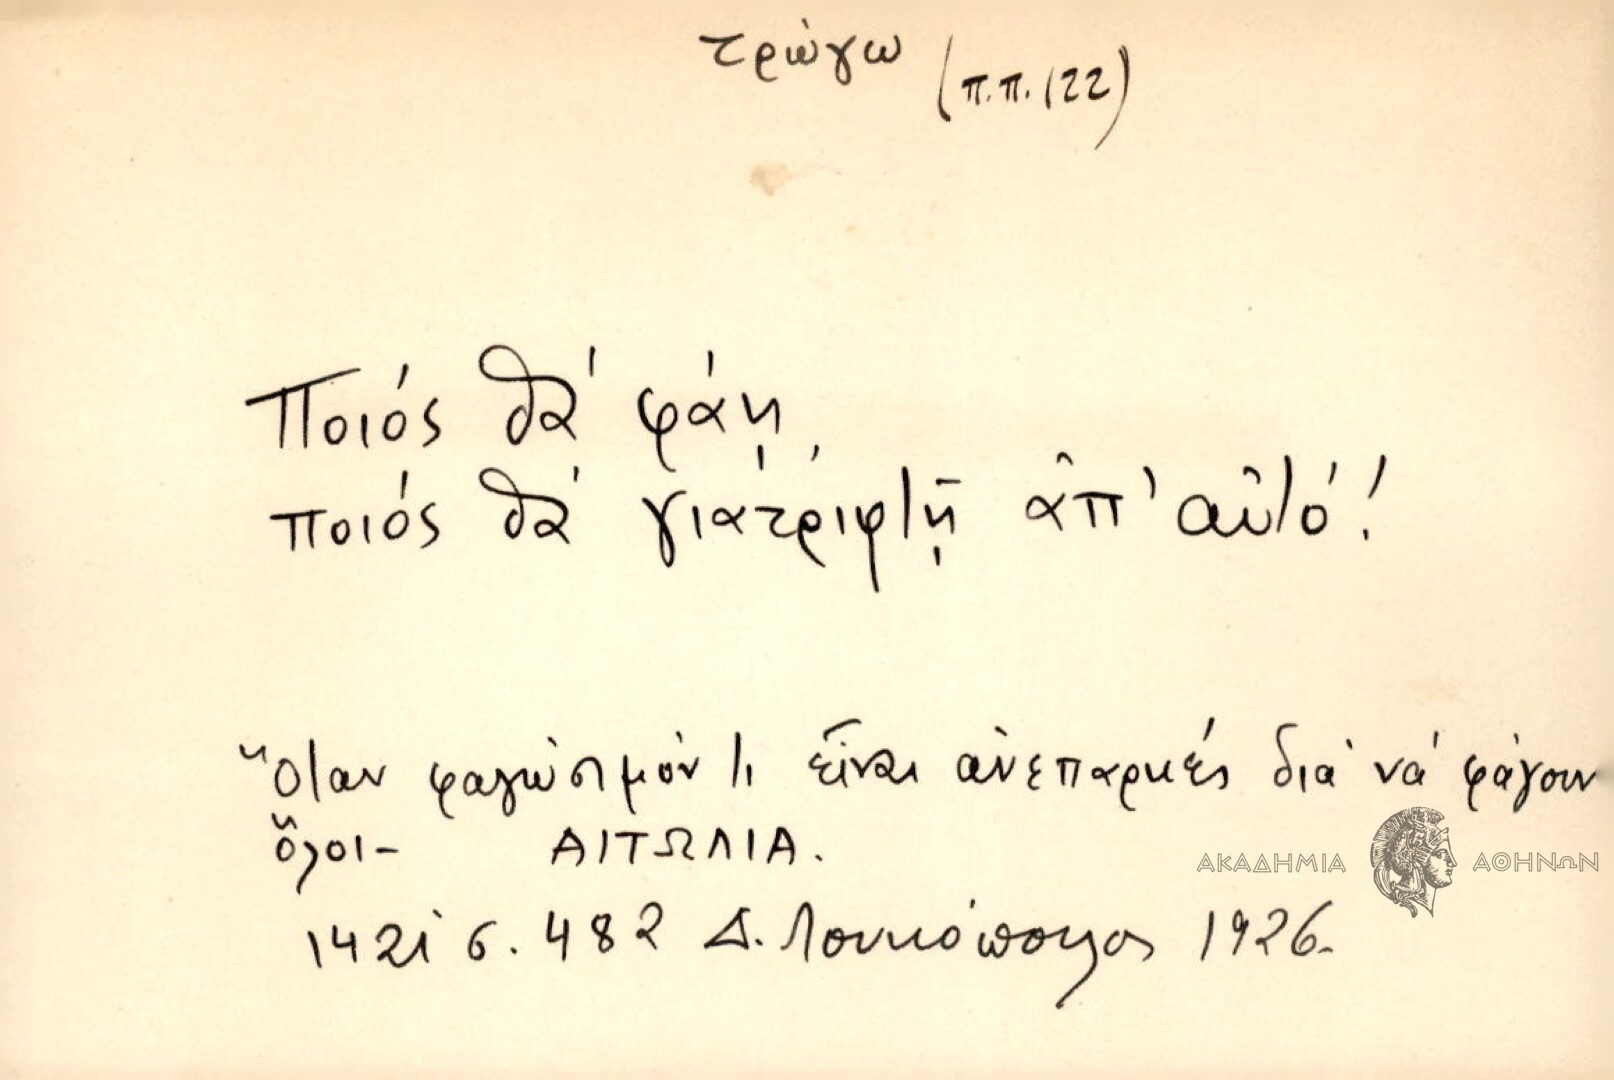 τρώγω (π.π. 122)
Ποιός θά φάῃ
ποιός θά γιατριφτῇ ἀπ' αὐτό!
Ὅταν φαγώσιμόν τι εἶναι ἀνεπαρκές διά νά φάγουν
ὅλοι-   ΑΙΤΩΛΙΑ.
ΑΚΑΔΗΜΙΑ ΑΘΗΝΩΝ
1421 σ. 482 Δ. Λουκόπουλος 1926.